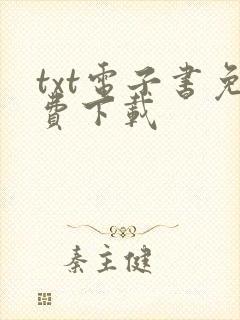 txt電子書免
費下載
秦主健